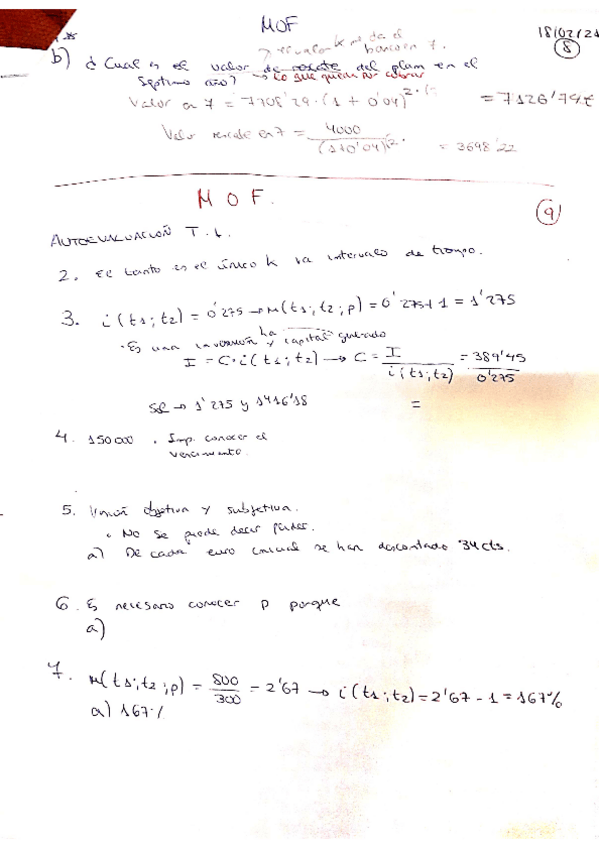 MOF
18/02/21
8
b) ¿Cual es el valor de rescate del plan en el
septimo año? → Lo que queda por cobrar
Valor en 7 = 7708'29·(1 + 0'04)^2· = 7126'74€
Valor rescate en 7 = 4000 / (1+0'04)^2· = 3698'22
MOF.
9
AUTOEVALUACIÓN T.1.
2. El tanto es el único k va intervalo de tiempo.
3. i(t1;t2) = 0'275 → u(t1;t2;p) = 0'275+1 = 1'275
· Es una inversión y ha capital generado
I = C·i(t1;t2) → C = I / i(t1;t2) = 389'45 / 0'275
Sol → 1'275 y 1416'18 =
4. 150000 · Imp. conocer el
vencimiento.
5. Visión objetiva y subjetiva.
· No se puede decir perder.
a) De cada euro inicial se han descontado 34cts.
6. Es necesario conocer p porque
a)
7. u(t1;t2;p) = 800 / 300 = 2'67 → i(t1;t2) = 2'67 - 1 = 167%
a) 167%